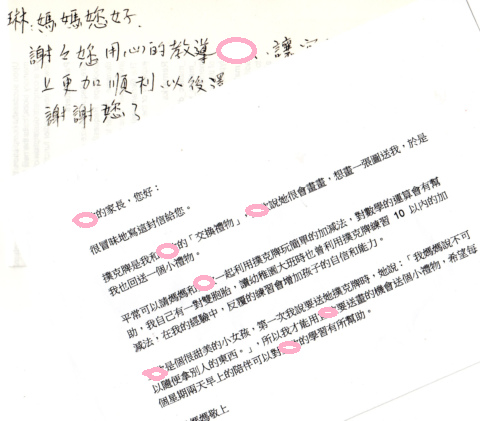 琳媽媽您好.
謝々您用心的教導 讓
上更加順利.以後還
謝謝您了
的家長，您好：
很冒昧地寫這封信給您。
撲克牌是我和 的「交換禮物」， 說她很會畫畫，想畫一張圖送我，於是
我也回送一個小禮物。
平常可以請媽媽和 一起利用撲克牌玩簡單的加減法，對數學的運算會有幫
助，我自己有一對雙胞胎，讓幼稚園大班時也曾利用撲克牌練習 10 以內的加
減法，在我的經驗中，反覆的練習會增加孩子的自信和能力。
是個很甜美的小女孩，第一次我說要送她撲克牌時，她說：「我媽媽說不可
以隨便拿別人的東西。」，所以我才能用 要送畫的機會送個小禮物，希望每
個星期兩天早上的陪伴可以對 的學習有所幫助。
媽媽敬上